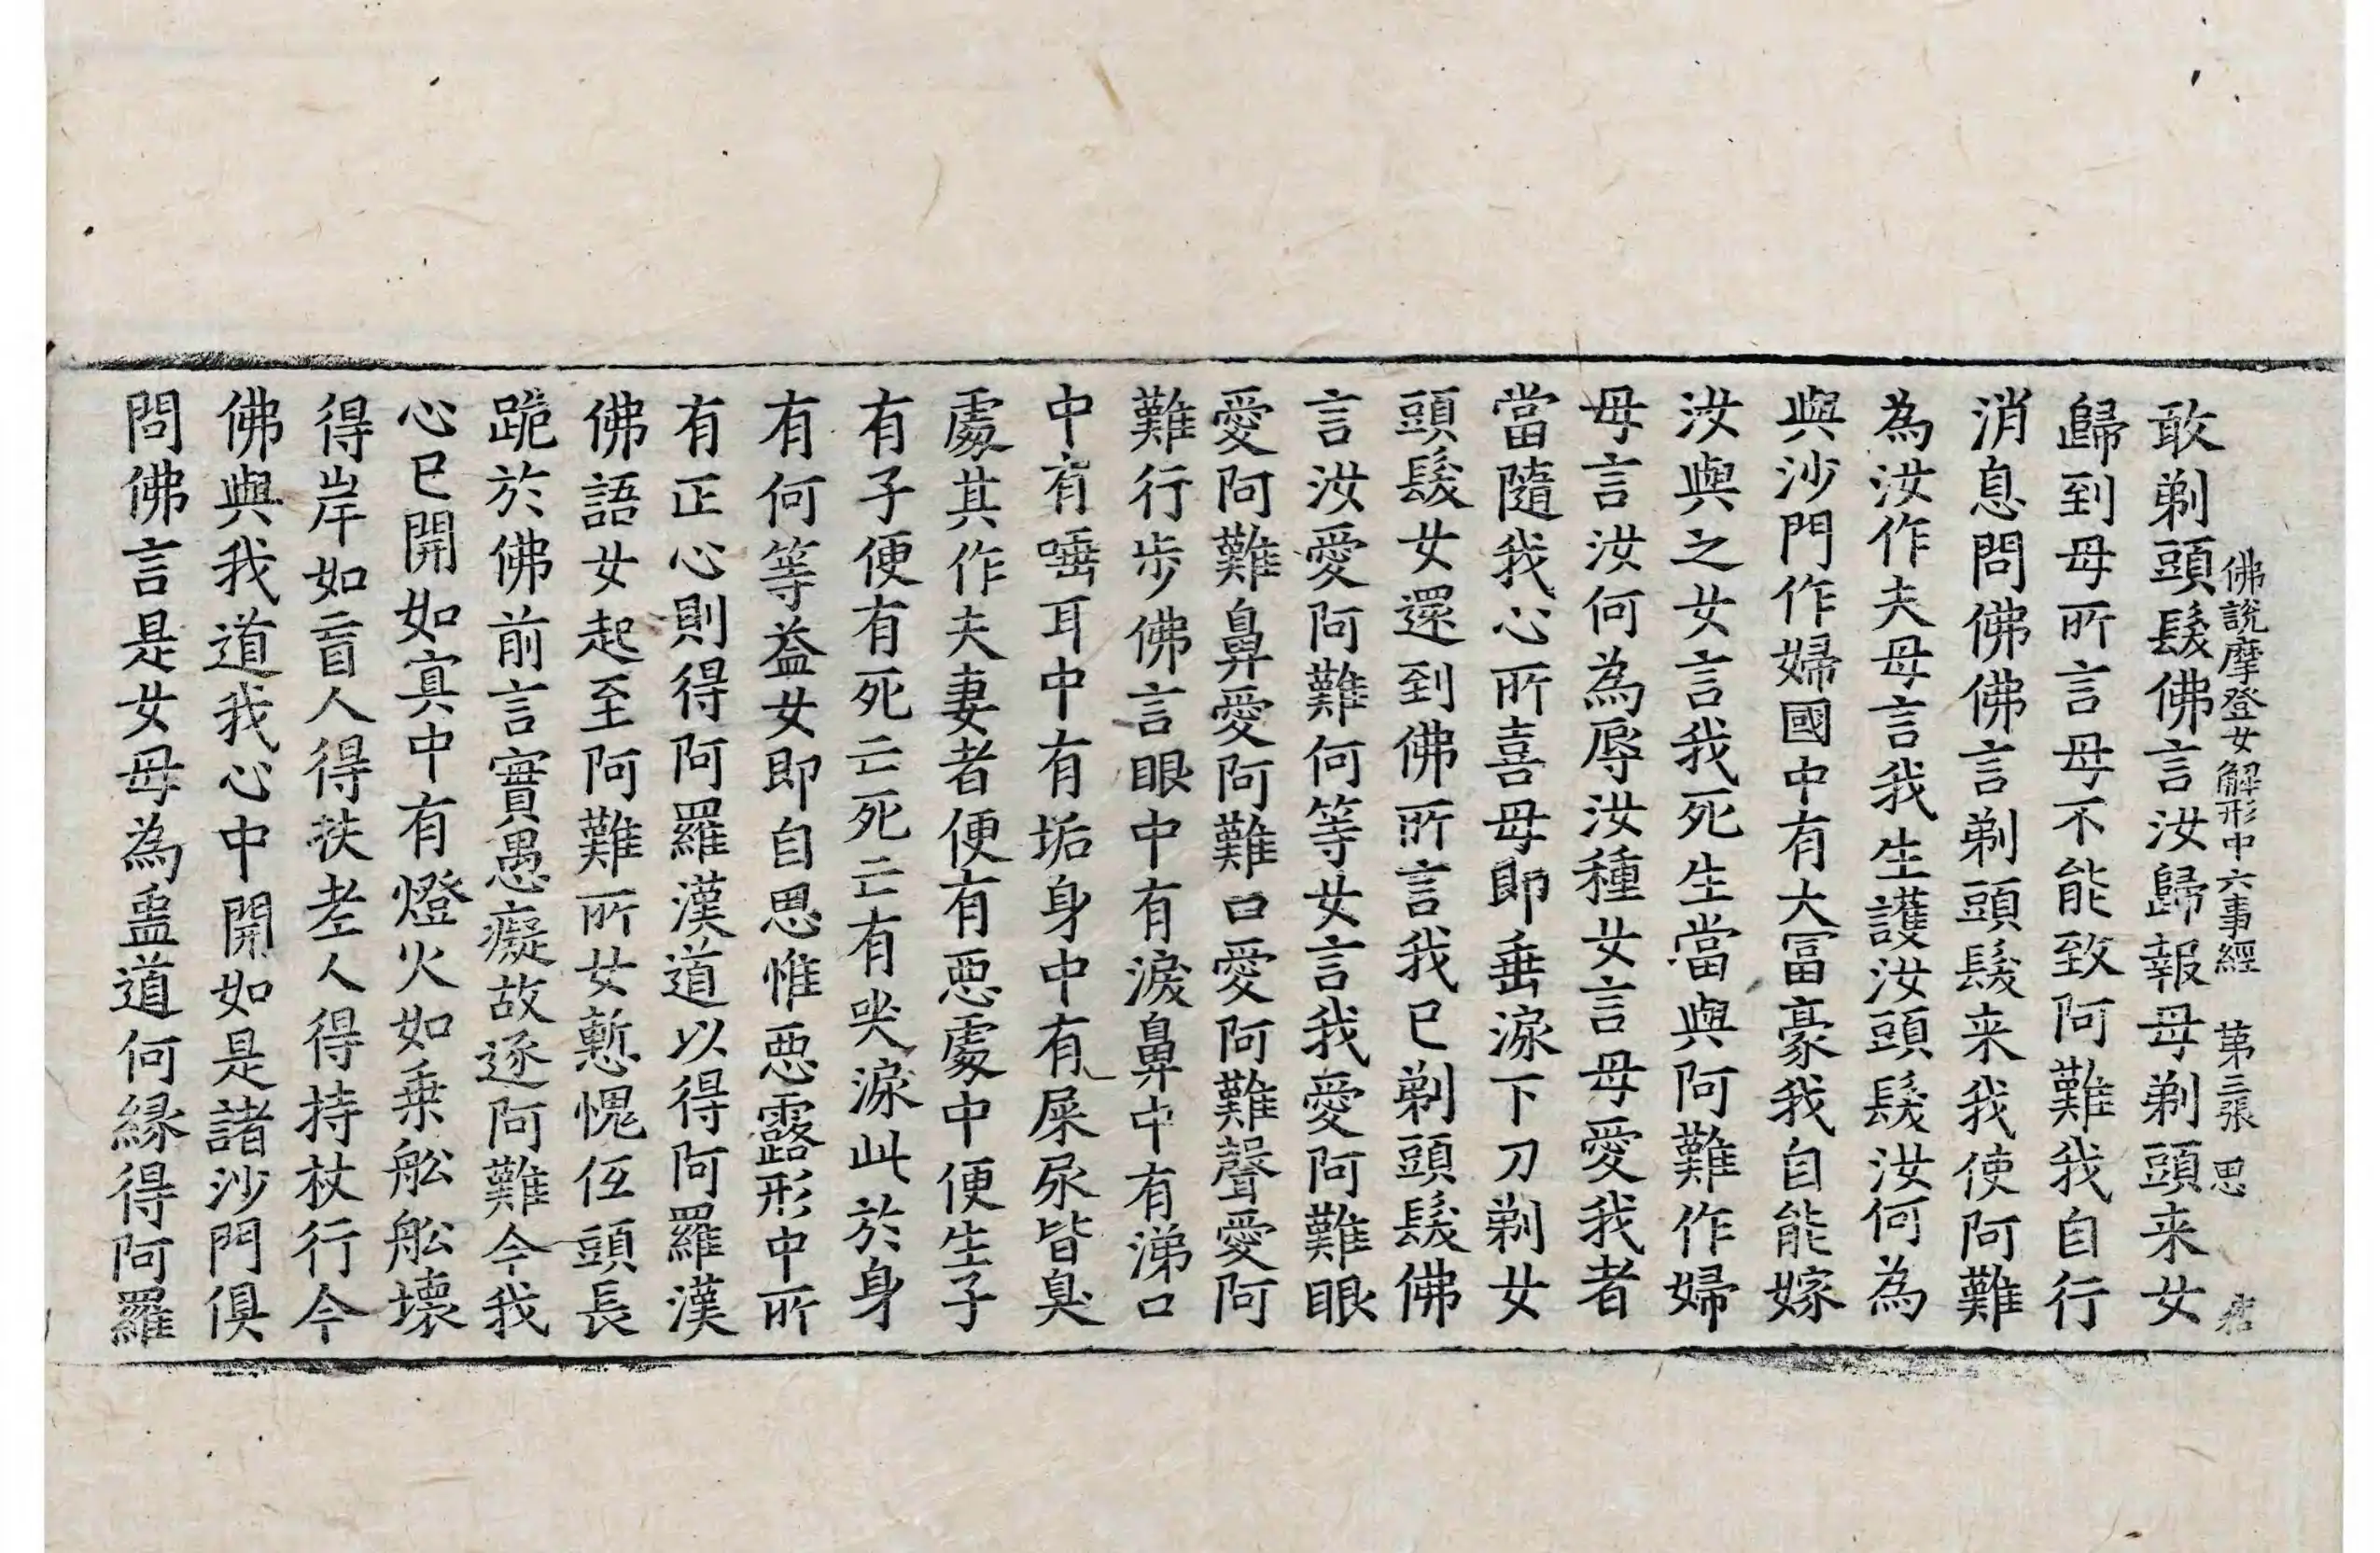 佛說摩登女解形中六事經 第三張 思
敢剃頭髮佛言汝歸報母剃頭来女
歸到母所言母不能致阿難我自行
消息問佛佛言剃頭髮来我使阿難
為汝作夫母言我生護汝頭髮汝何為
與沙門作婦國中有大冨豪我自能嫁
汝與之女言我死生當與阿難作婦
母言汝何為辱汝種女言母愛我者
當隨我心所喜母即垂淚下刀剃女
頭髮女還到佛所言我已剃頭髮佛
言汝愛阿難何等女言我愛阿難眼
愛阿難鼻愛阿難口愛阿難聲愛阿
難行步佛言眼中有淚鼻中有涕口
中有唾耳中有垢身中有屎尿皆臭
處其作夫妻者便有惡處中便生子
有子便有死亡死亡有哭淚此於身
有何等益女即自思惟惡露形中所
有正心則得阿羅漢道以得阿羅漢
佛語女起至阿難所女慙愧低頭長
跪於佛前言實愚癡故逐阿難今我
心已開如冥中有燈火如乗舩舩壞
得岸如盲人得扶老人得持杖行今
佛與我道我心中開如是諸沙門俱
問佛言是女母為蛊道何緣得阿羅